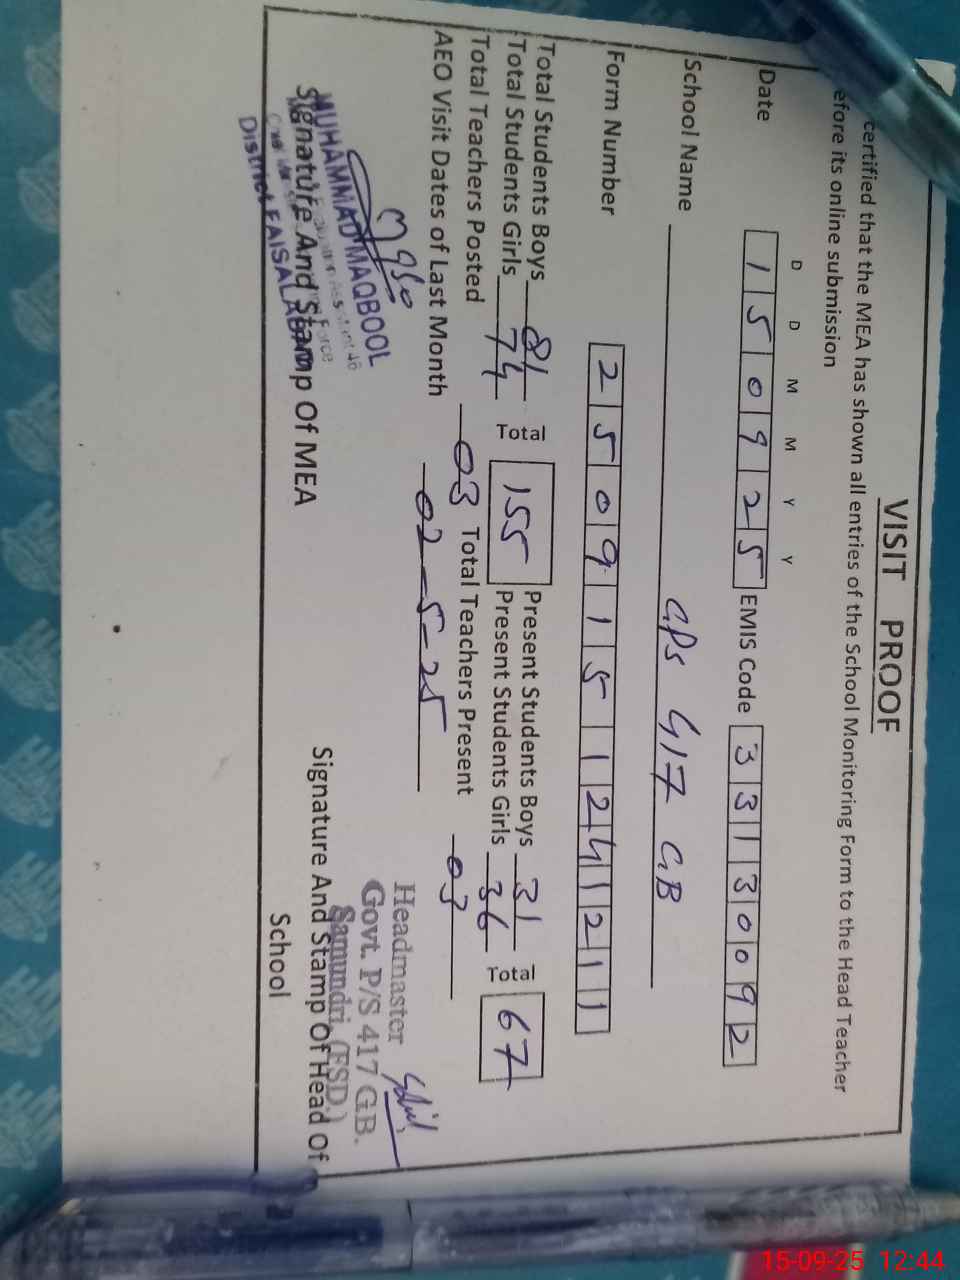 VISIT PROOF
certified that the MEA has shown all entries of the School Monitoring Form to the Head Teacher
efore its online submission
D D M M Y Y
Date 1 5 0 9 2 5 EMIS Code 3 3 1 3 0 0 9 2
School Name GPS 417 GB
Form Number 2 5 0 9 1 5 1 2 4 1 2 1 1
Total Students Boys 81 Total 155 Present Students Boys 31 Total 67
Total Students Girls 74 Present Students Girls 36
Total Teachers Posted 03 Total Teachers Present 03
AEO Visit Dates of Last Month 02-5-25
Headmaster
Govt. P/S 417 G.B.
Samundri, (FSD.)
MUHAMMAD MAQBOOL
District FAISALABAD
Signature And Stamp Of MEA
Signature And Stamp Of Head Of
School
15-09-25 12:44